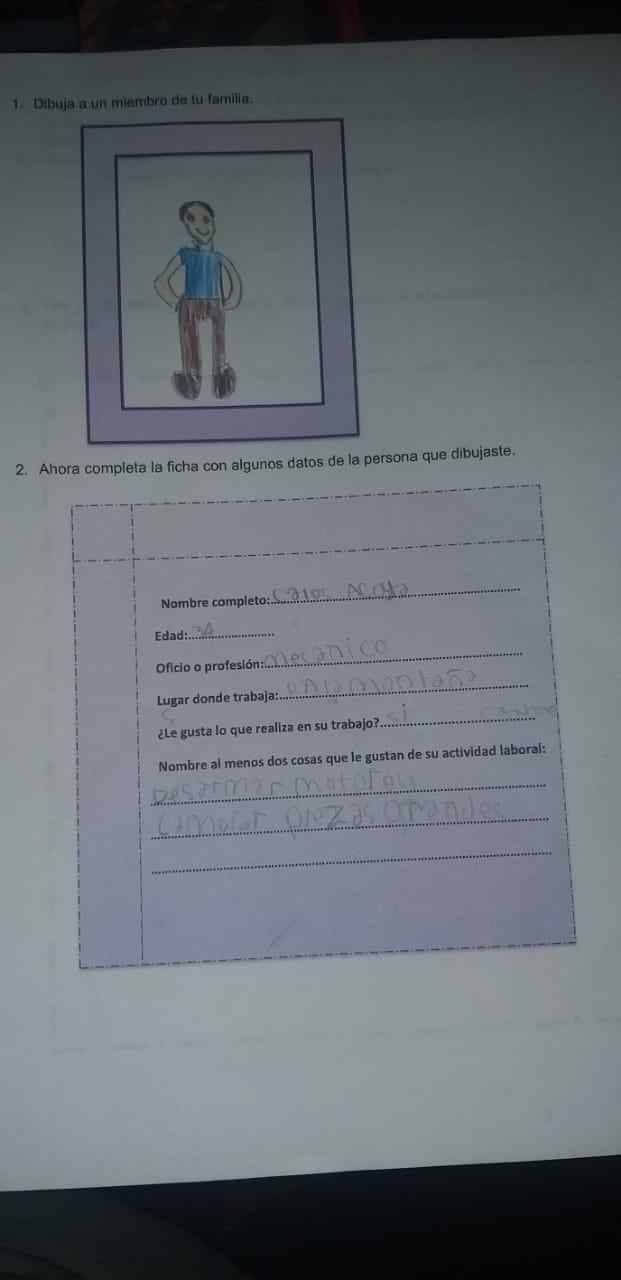 1. Dibuja a un miembro de tu familia.
2. Ahora completa la ficha con algunos datos de la persona que dibujaste.
Nombre completo: Calos Acoya
Edad:
Oficio o profesión: mecanico
Lugar donde trabaja: en la montaña
¿Le gusta lo que realiza en su trabajo? si
Nombre al menos dos cosas que le gustan de su actividad laboral:
Desarmar motores
camblar piezas grandes